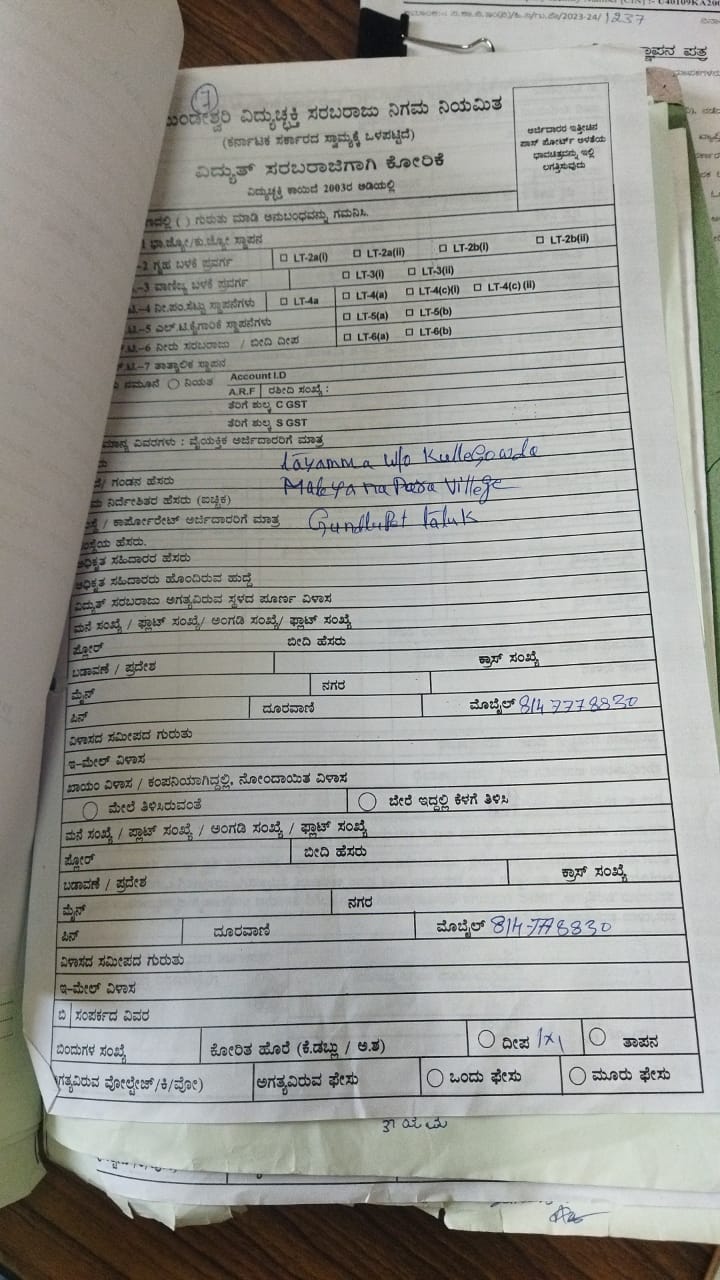 U40109KA200
2023-24/1237
ಜ್ಞಾಪನ ಪತ್ರ
7
ಮುಂಡೇಶ್ವರಿ ವಿದ್ಯುಚ್ಛಕ್ತಿ ಸರಬರಾಜು ನಿಗಮ ನಿಯಮಿತ
(ಕರ್ನಾಟಕ ಸರ್ಕಾರದ ಸ್ವಾಮ್ಯಕ್ಕೆ ಒಳಪಟ್ಟಿದೆ)
ವಿದ್ಯುತ್ ಸರಬರಾಜಿಗಾಗಿ ಕೋರಿಕೆ
ವಿದ್ಯುಚ್ಛಕ್ತಿ ಕಾಯಿದೆ 2003ರ ಅಡಿಯಲ್ಲಿ
ಅರ್ಜಿದಾರರ ಇತ್ತೀಚಿನ
ಪಾಸ್ ಪೋರ್ಟ್ ಅಳತೆಯ
ಭಾವಚಿತ್ರವನ್ನು ಇಲ್ಲಿ
ಲಗತ್ತಿಸುವುದು
( ) ಗುರುತು ಮಾಡಿ ಅನುಬಂಧವನ್ನು ಗಮನಿಸಿ.
1 ಭಾ.ಜ್ಯೋ/ಕು.ಜ್ಯೋ ಸ್ಥಾಪನ
-2 ಗೃಹ ಬಳಕೆ ಪ್ರವರ್ಗ □ LT-2a(i) □ LT-2a(ii) □ LT-2b(i) □ LT-2b(ii)
-3 ವಾಣಿಜ್ಯ ಬಳಕೆ ಪ್ರವರ್ಗ □ LT-3(i) □ LT-3(ii)
-4 ನೀ.ಪಂ.ಸೆಟ್ಟು ಸ್ಥಾಪನೆಗಳು □ LT-4a □ LT-4(a) □ LT-4(c)(i) □ LT-4(c) (ii)
-5 ಎಲ್.ಟಿ.ಕೈಗಾರಿಕೆ ಸ್ಥಾಪನೆಗಳು □ LT-5(a) □ LT-5(b)
-6 ನೀರು ಸರಬರಾಜು / ಬೀದಿ ದೀಪ □ LT-6(a) □ LT-6(b)
-7 ತಾತ್ಕಾಲಿಕ ಸ್ಥಾಪನ
ನಮೂನೆ ○ ನಿಯತ Account I.D
A.R.F ರಶೀದಿ ಸಂಖ್ಯೆ :
ತೆರಿಗೆ ಶುಲ್ಕ C GST
ತೆರಿಗೆ ಶುಲ್ಕ S GST
ವಿವರಗಳು : ವೈಯಕ್ತಿಕ ಅರ್ಜಿದಾರರಿಗೆ ಮಾತ್ರ
W/o KulleGowda
/ ಗಂಡನ ಹೆಸರು Village
ನಿರ್ದೇಶಿತರ ಹೆಸರು (ಐಚ್ಛಿಕ)
/ ಕಾರ್ಪೋರೇಟ್ ಅರ್ಜಿದಾರರಿಗೆ ಮಾತ್ರ Gundlupet Taluk
ಸಂಸ್ಥೆಯ ಹೆಸರು.
ಅಧಿಕೃತ ಸಹಿದಾರರ ಹೆಸರು
ಅಧಿಕೃತ ಸಹಿದಾರರು ಹೊಂದಿರುವ ಹುದ್ದೆ
ವಿದ್ಯುತ್ ಸರಬರಾಜು ಅಗತ್ಯವಿರುವ ಸ್ಥಳದ ಪೂರ್ಣ ವಿಳಾಸ
ಮನೆ ಸಂಖ್ಯೆ / ಪ್ಲಾಟ್ ಸಂಖ್ಯೆ/ ಅಂಗಡಿ ಸಂಖ್ಯೆ/ ಫ್ಲಾಟ್ ಸಂಖ್ಯೆ
ಫ್ಲೋರ್ ಬೀದಿ ಹೆಸರು
ಬಡಾವಣೆ / ಪ್ರದೇಶ ಕ್ರಾಸ್ ಸಂಖ್ಯೆ
ಮೈನ್ ನಗರ
ಪಿನ್ ದೂರವಾಣಿ ಮೊಬೈಲ್ 8147778830
ವಿಳಾಸದ ಸಮೀಪದ ಗುರುತು
ಇ-ಮೇಲ್ ವಿಳಾಸ
ಖಾಯಂ ವಿಳಾಸ / ಕಂಪನಿಯಾಗಿದ್ದಲ್ಲಿ, ನೋಂದಾಯಿತ ವಿಳಾಸ
○ ಮೇಲೆ ತಿಳಿಸಿರುವಂತೆ ○ ಬೇರೆ ಇದ್ದಲ್ಲಿ ಕೆಳಗೆ ತಿಳಿಸಿ
ಮನೆ ಸಂಖ್ಯೆ / ಪ್ಲಾಟ್ ಸಂಖ್ಯೆ / ಅಂಗಡಿ ಸಂಖ್ಯೆ / ಫ್ಲಾಟ್ ಸಂಖ್ಯೆ
ಫ್ಲೋರ್ ಬೀದಿ ಹೆಸರು
ಬಡಾವಣೆ / ಪ್ರದೇಶ ಕ್ರಾಸ್ ಸಂಖ್ಯೆ
ಮೈನ್ ನಗರ
ಪಿನ್ ದೂರವಾಣಿ ಮೊಬೈಲ್
ವಿಳಾಸದ ಸಮೀಪದ ಗುರುತು
ಇ-ಮೇಲ್ ವಿಳಾಸ
ಬಿ ಸಂಪರ್ಕದ ವಿವರ
ಬಿಂದುಗಳ ಸಂಖ್ಯೆ ಕೋರಿತ ಹೊರೆ (ಕೆ.ಡಬ್ಲು / ಅ.ಶ) ○ ದೀಪ 1x1 ○ ತಾಪನ
ಅಗತ್ಯವಿರುವ ವೋಲ್ಟೇಜ್/ಕಿ/ವೋ) ಅಗತ್ಯವಿರುವ ಫೇಸು ○ ಒಂದು ಫೇಸು ○ ಮೂರು ಫೇಸು
ತಾಯಮ